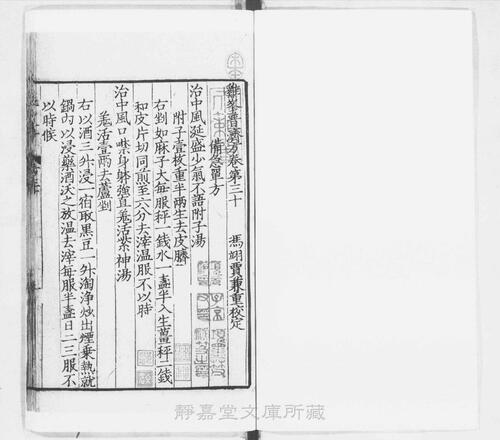 雞峯普濟方卷第三十
馮翊賈兼重校定
備急單方
治中風涎盛少氣不語附子湯
附子壹枚重半兩生去皮臍
右剉如麻子大每服秤一錢水一盞半入生薑秤二錢
和皮片切同煎至六分去滓温服不以時
治中風口噤身躰強直羗活紫神湯
羗活壹兩去蘆剉
右以酒三升浸一宿取黑豆一升淘淨炒出煙乗熱就
鍋內以浸藥酒沃之放温去滓每服半盞日二三服不
以時候
靜嘉堂文庫所藏